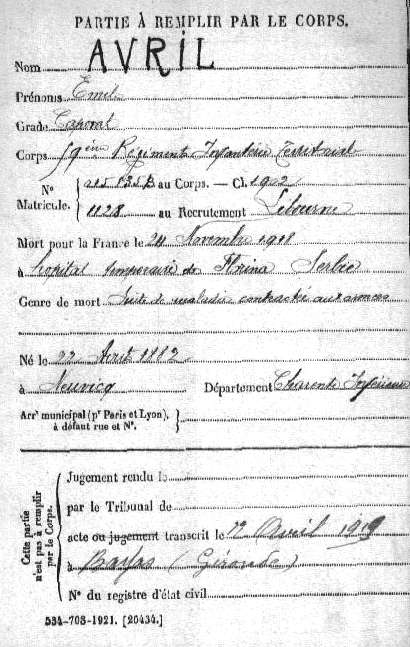 PARTIE À REMPLIR PAR LE CORPS.
Nom AVRIL
Prénoms Emile
Grade Caporal
Corps 59ème Régiment Infanterie Territorial
N° Matricule. { 215 135 B au Corps. — Cl. 1902
1128 au Recrutement Libourne
Mort pour la France le 24 Novembre 1918
à hopital temporaire de Florina Serbie
Genre de mort Suite de maladie contractée aux armées
Né le 22 Août 1882
à Neuvicq Département Charente Inférieure
Arrt municipal (pr Paris et Lyon), à défaut rue et N°. }
Cette partie n'est pas à remplir par le Corps.
Jugement rendu le
par le Tribunal de
acte ou jugement transcrit le 12 Avril 1919
à (Gironde)
N° du registre d'état civil
534-708-1921. [26434.]